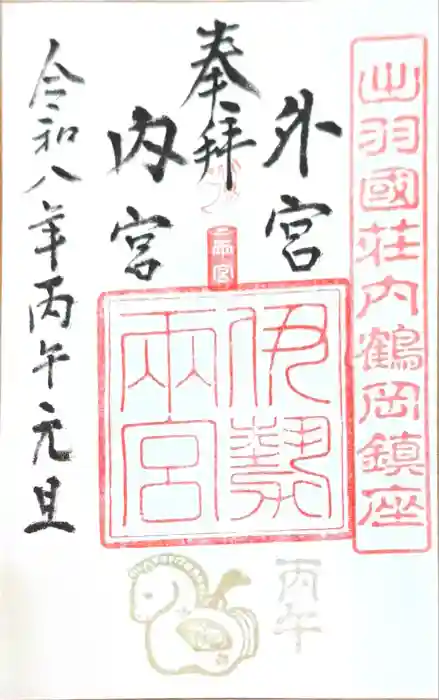 出羽國荘内鶴岡鎮座
外宮
奉拝
内宮
伊勢
兩宮
丙午
令和八年丙午元旦